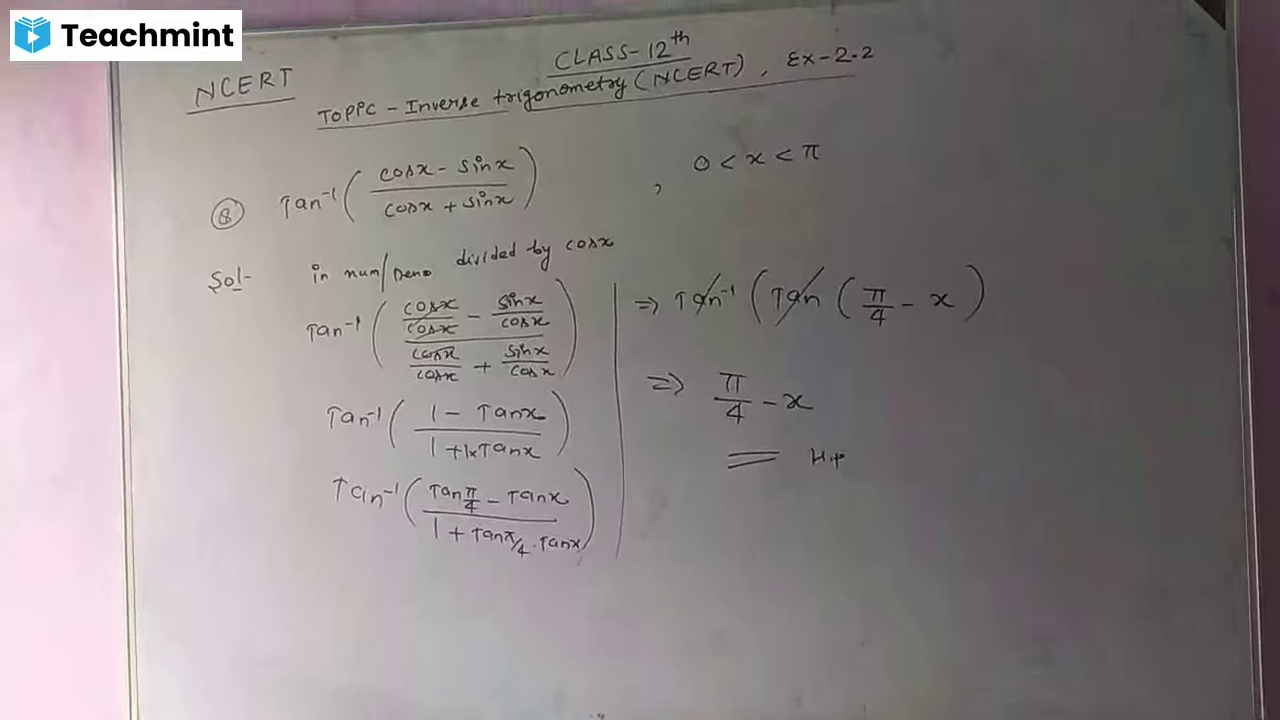 Teachmint
NCERT
CLASS-12th
TOPPC - Inverse trigonometry (NCERT), Ex-2.2
⑧ Tan⁻¹ ( (cosx - sinx) / (cosx + sinx) ) , 0 < x < π
Sol- in num/Deno divided by cosx
Tan⁻¹ ( (cosx/cosx - sinx/cosx) / (cosx/cosx + sinx/cosx) )
Tan⁻¹ ( (1 - Tanx) / (1 + 1×Tanx) )
Tan⁻¹ ( (Tan π/4 - Tanx) / (1 + Tan π/4 . Tanx) )
⇒ Tan⁻¹ ( Tan ( π/4 - x )
⇒ π/4 - x
H.p